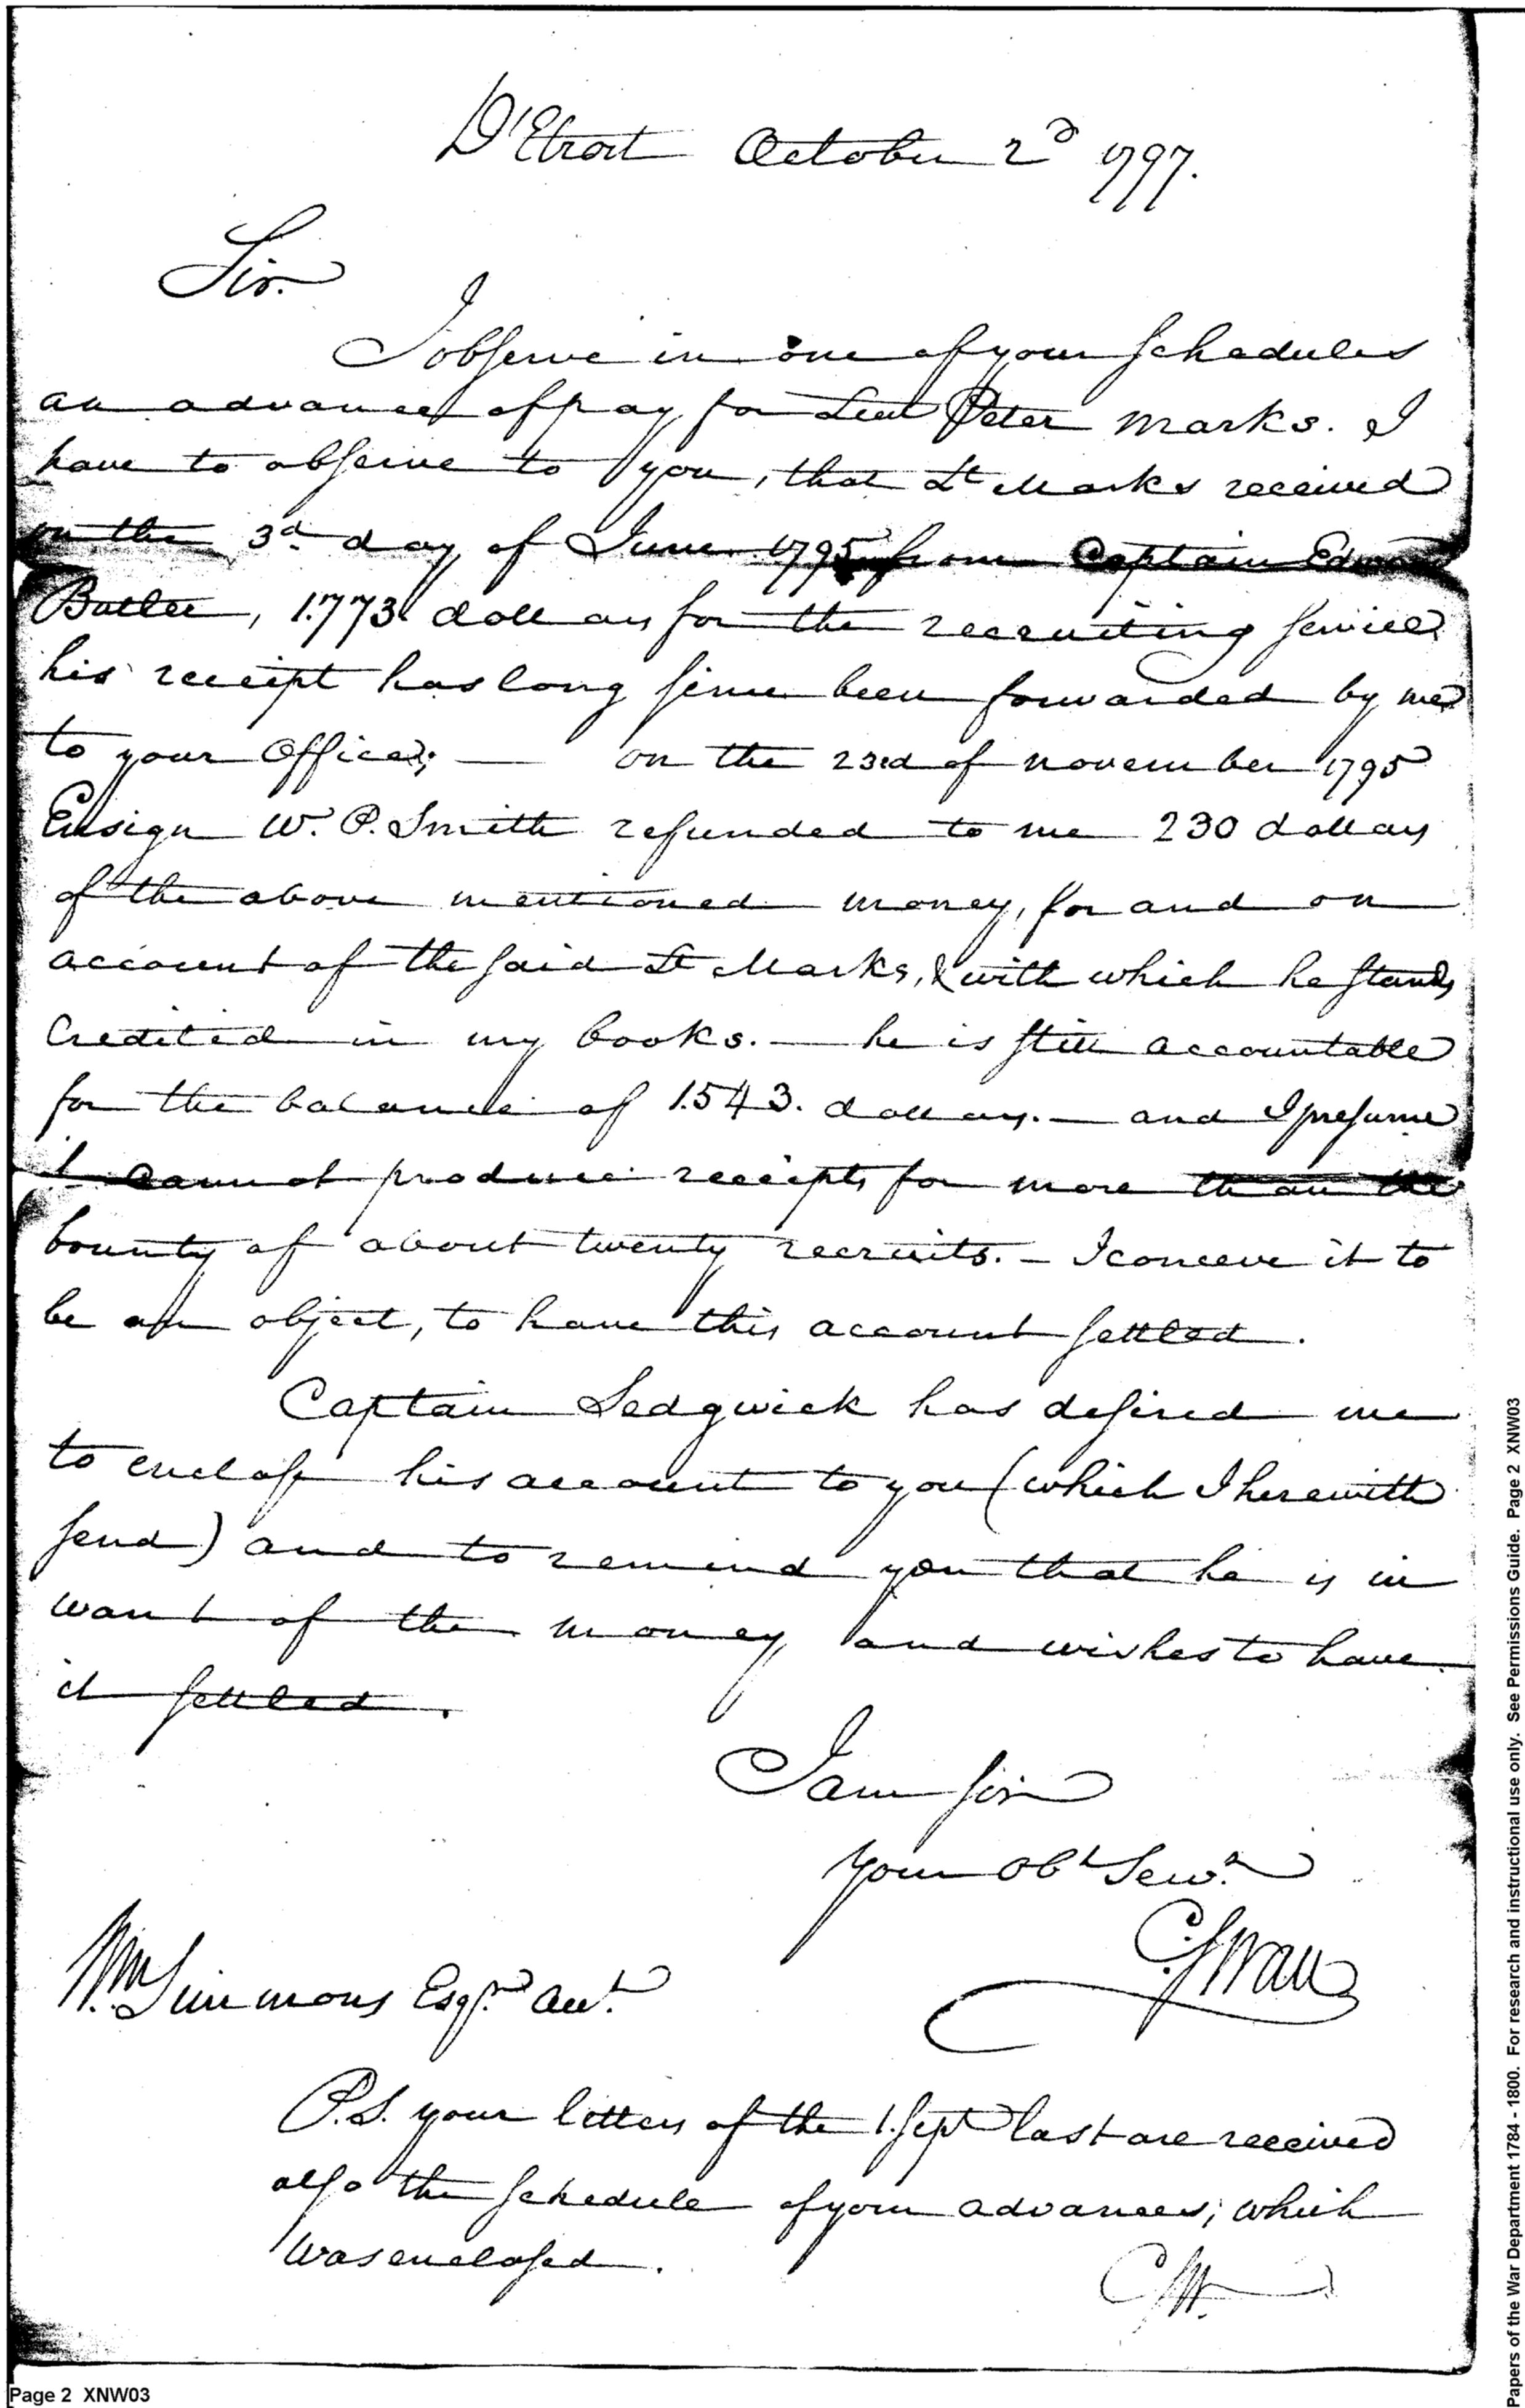 D'Etroit October 2d 1797.
Sir.
I observe in one of your schedules
an advance of pay for Lieut Peter Marks. I
have to observe to you, that Lt Marks received
on the 3d day of June 1795 from Captain Edward
Butler, 1.773 dollars for the recruiting service
his receipt has long since been forwarded by me
to your Office; — on the 23rd of november 1795
Ensign W. P. Smith refunded to me 230 dollars
of the above mentioned money, for and on
account of the said Lt Marks, & with which he stands
Credited in my books. — he is still accountable
for the balance of 1.543. dollars. — and I presume
cannot produce receipts for more than the
bounty of about twenty recruits. — I conceve it to
be an object, to have this account settled.
Captain Sedgwick has desired me
to enclose his account to you (which I herewith
send) and to remind you that he is in
want of the money and wishes to have
it settled.
I am sir
your Obt Servt
C. Swan
Wm Simmons Esqr. Act.
P.S. your letters of the 1. Sept last are received
also the schedule of your advances; which
was enclosed.
C.S.
Page 2 XNW03
Papers of the War Department 1784 - 1800. For research and instructional use only. See Permissions Guide. Page 2 XNW03